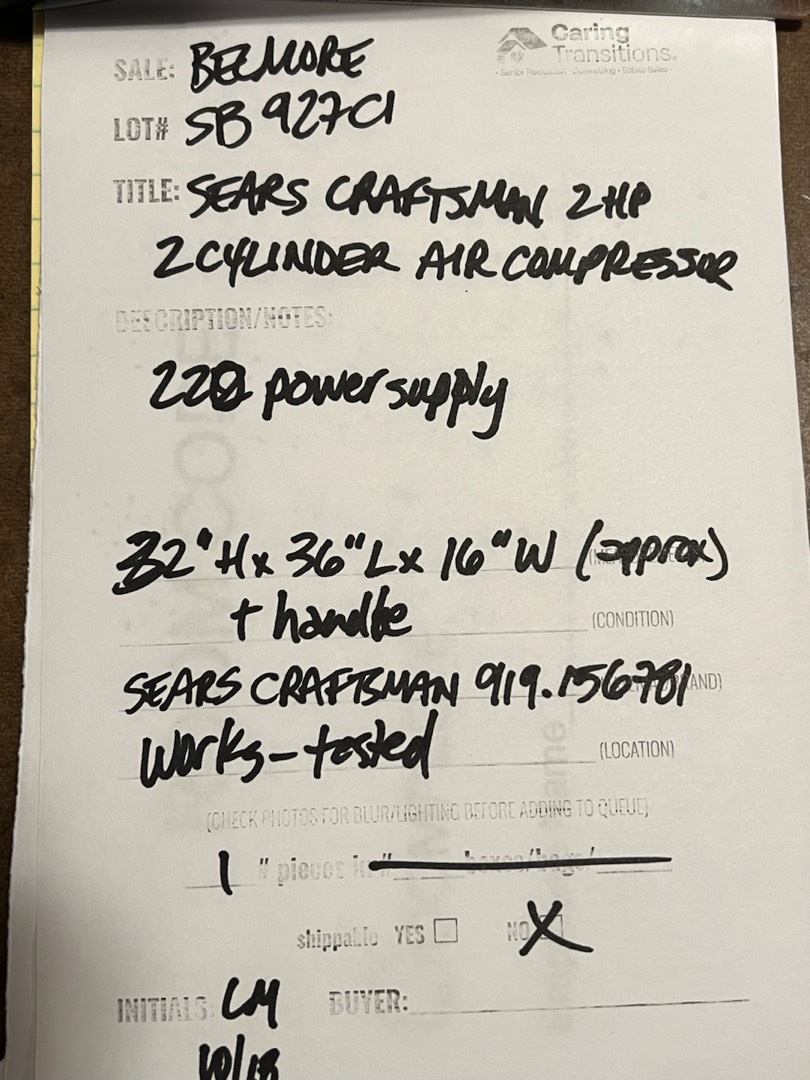 Caring
Transitions.
SALE: BELMORE
LOT# SB 927CI
TITLE: SEARS CRAFTSMAN 2 HP
2 CYLINDER AIR COMPRESSOR
DESCRIPTION/NOTES:
220 power supply
32" H x 36" L x 16" W (approx)
+ handle (CONDITION)
SEARS CRAFTSMAN 919.156781
Works - tested (LOCATION)
(CHECK PHOTOS FOR BLUR/LIGHTING BEFORE ADDING TO QUEUE)
1 # pieces in # boxes/bags/
shippable YES NO X
INITIALS: CM BUYER:
10/18